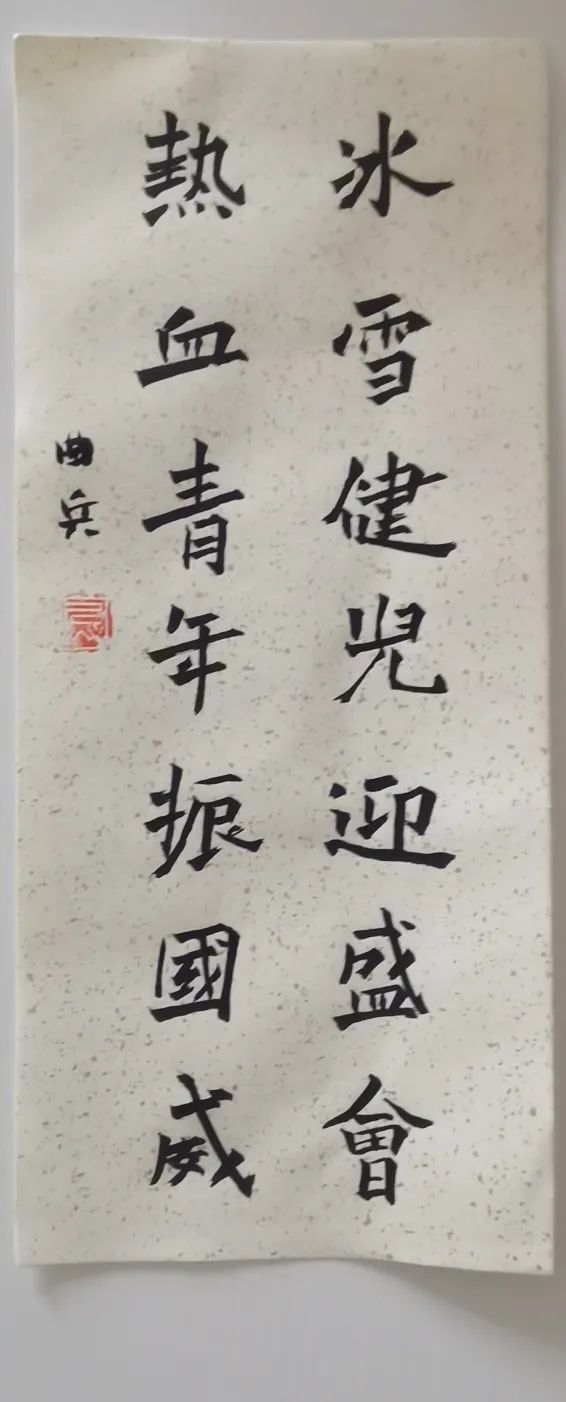 冰雪健兒迎盛會
熱血青年振國威
曲兵